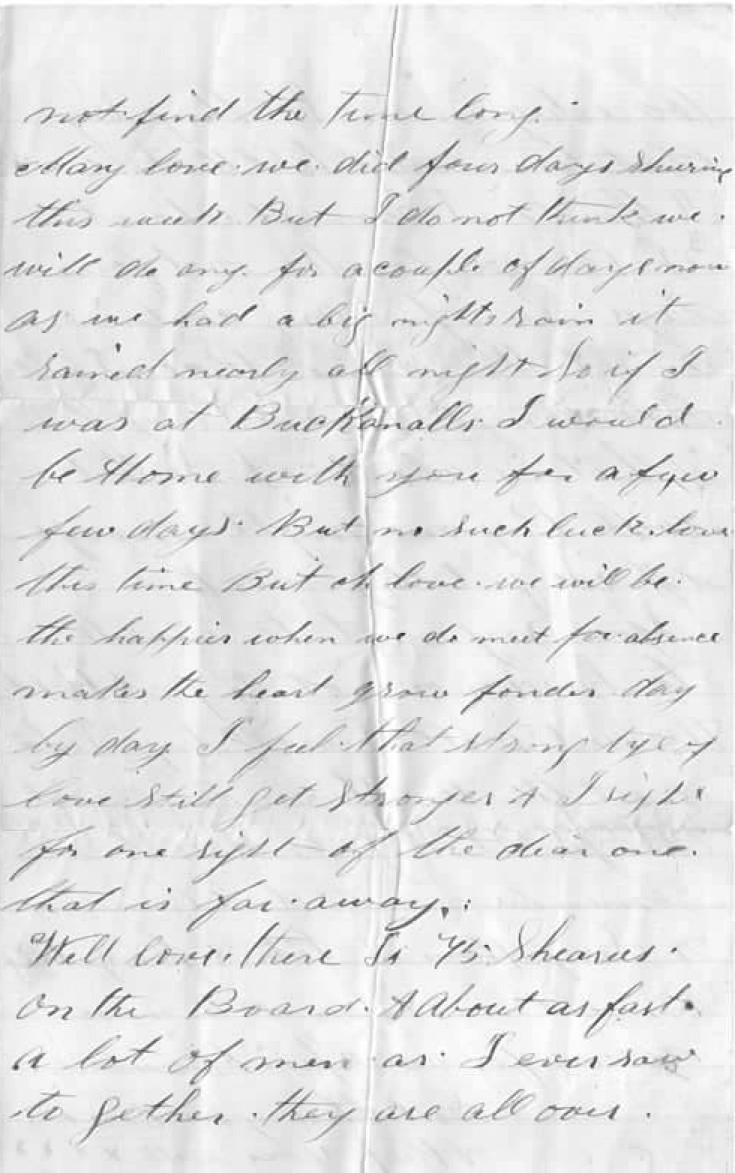 not find the time long.
Mary love. we. did four days shearing
this week But I do not think we.
will do any. for a couple of days now
as we had a big nights rain it
rained nearly all night So if I
was at Buckanalls I would
be Home with you for a few
few days. But no such luck. love
this time But oh love. we will be.
the happier when we do meet for absence
makes the heart grow fonder day
by day I feel that strong tye of
love still get stronger & I sigh
for one sight of the dear one.
that is far. away.
Well love. there is 45 Shearers.
on the Board. & About as fast.
a lot of men as. I ever saw
to gether. they are all over.